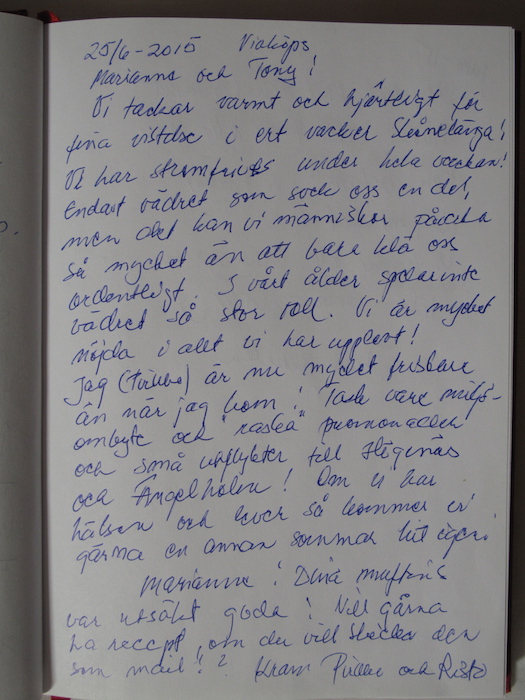 25/6-2015 Vialöps
Marianne och Tony!
Vi tackar varmt och hjärtligt för
fina vistelse i ert vacker Skånelänga!
Vi har under hela veckan!
Endast vädret som svek oss en del,
men det kan vi människor påverka
så mycket än att bara klä oss
ordentligt. I vårt ålder spelar inte
vädret så stor roll. Vi är mycket
nöjda i allt vi har upplevt!
Jag är nu mycket friskare
än när jag kom! Tack vare miljö-
ombyte och "raska" promenader
och små utflykter till Höganäs
och Ängelholm! Om vi har
hälsan och lever så kommer vi
gärna en annan sommar hit igen!
Marianne! Dina muffins
var utsökt goda! Vill gärna
ha recept, om du vill skicka den
som mail!? Kram och Risto